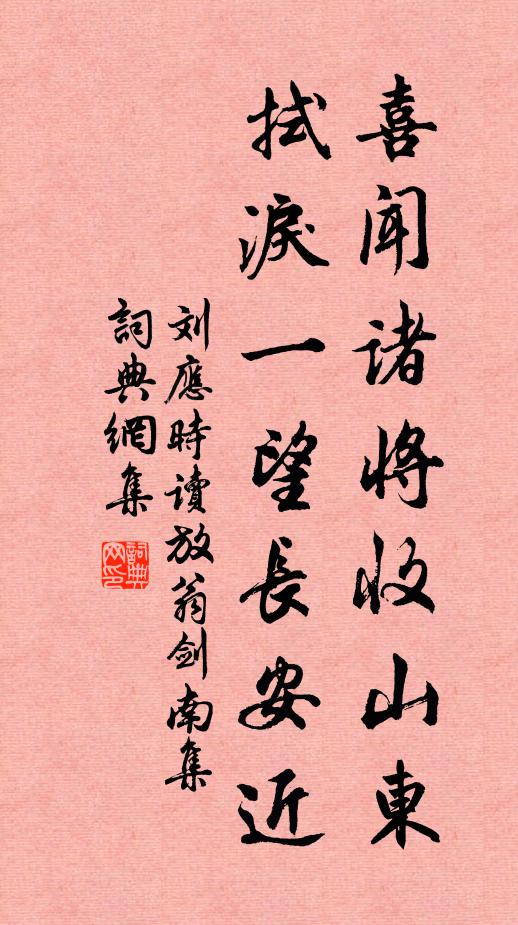 喜聞诸將收山東
拭淚一望長安近
刘應時讀放翁劍南集
詞典網集
詞典網印